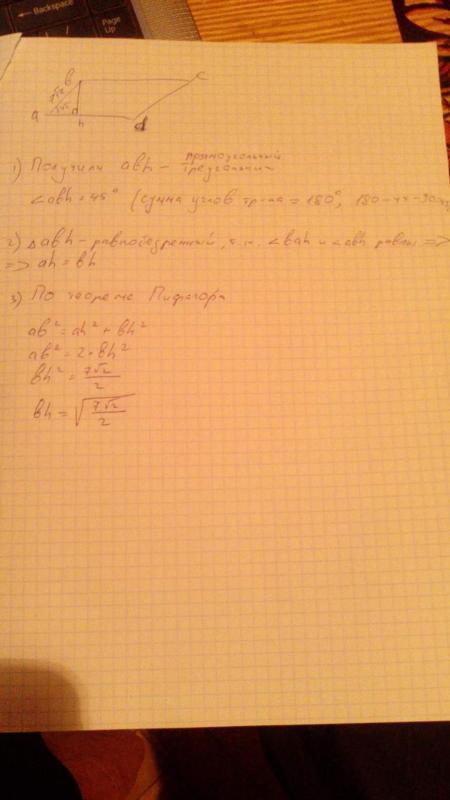 Backspace
Page
Up
в
c
7√2
a
h
d
1) Получили авh – прямоугольный
треугольник
∠авh = 45° (сумма углов тр-ка = 180°, 180-45-90=45
2) △авh – равнобедренный, т.к. ∠вah и ∠авh равны =>
=> ah = вh
3) По теореме Пифагора
aв² = ah² + вh²
aв² = 2 · вh²
вh² = 7√2/2
вh = √(7√2/2)